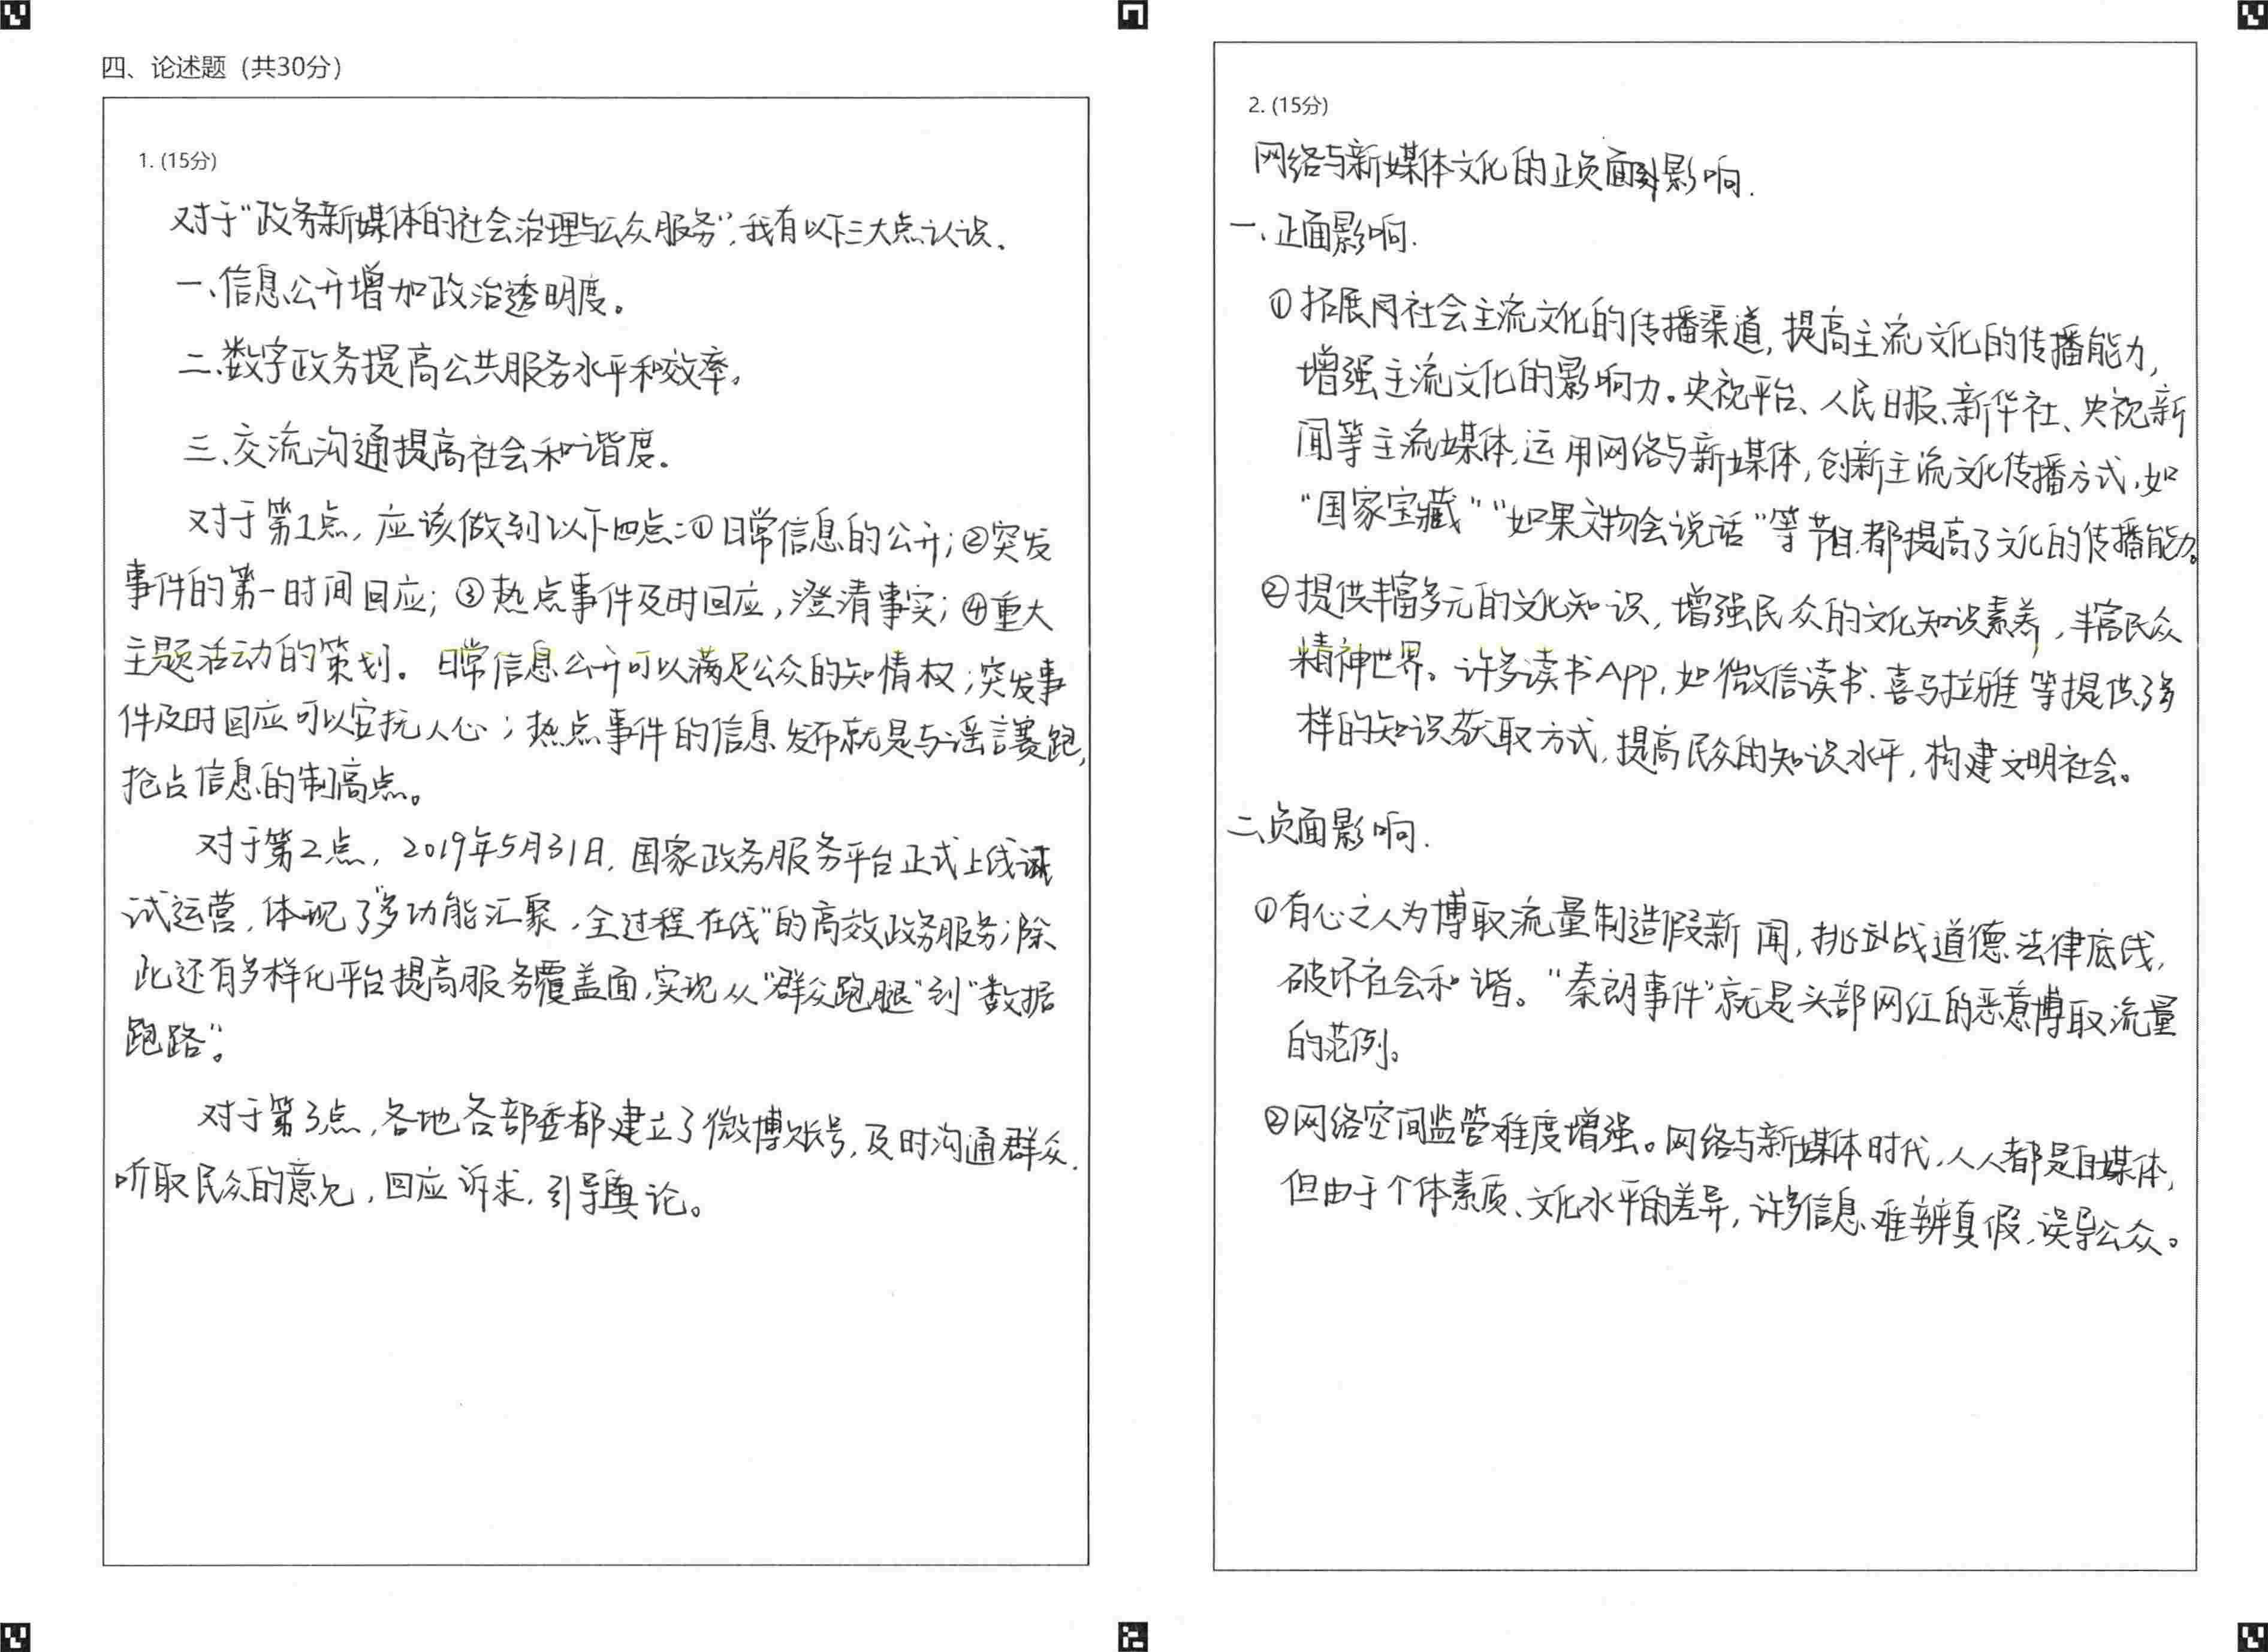 四、论述题（共30分）
1. (15分)
对于“政务新媒体的社会治理与公众服务”，我有以下三大点认识.
一、信息公开增加政治透明度。
二、数字政务提高公共服务水平和效率。
三、交流沟通提高社会和谐度。
对于第1点，应该做到以下四点：①日常信息的公开；②突发
事件的第一时间回应；③热点事件及时回应，澄清事实；④重大
主题活动的策划。日常信息公开可以满足公众的知情权；突发事
件及时回应可以安抚人心；热点事件的信息发布就是与谣言赛跑，
抢占信息的制高点。
对于第2点，2019年5月31日，国家政务服务平台正式上线
试运营，体现了“多功能汇聚，全过程在线”的高效政务服务；除
此还有多样化平台提高服务覆盖面，实现从“群众跑腿”到“数据
跑路”。
对于第3点，各地各部委都建立了微博账号，及时沟通群众，
听取民众的意见，回应诉求，引导舆论。
2. (15分)
网络与新媒体文化的正负面影响.
一、正面影响.
①拓展网社会主流文化的传播渠道，提高主流文化的传播能力，
增强主流文化的影响力。央视平台、人民日报、新华社、央视新
闻等主流媒体，运用网络与新媒体，创新主流文化传播方式，如
“国家宝藏”“如果文物会说话”等节目，都提高了文化的传播能力。
②提供丰富多元的文化知识，增强民众的文化知识素养，丰富民众
精神世界。许多读书APP，如微信读书、喜马拉雅等提供了多
样的知识获取方式，提高民众的知识水平，构建文明社会。
二、负面影响.
①有心之人为博取流量制造假新闻，挑战道德、法律底线，
破坏社会和谐。“秦朗事件”就是头部网红的恶意博取流量
的范例。
②网络空间监管难度增强。网络与新媒体时代，人人都是自媒体，
但由于个体素质、文化水平的差异，许多信息难辨真假，误导公众。